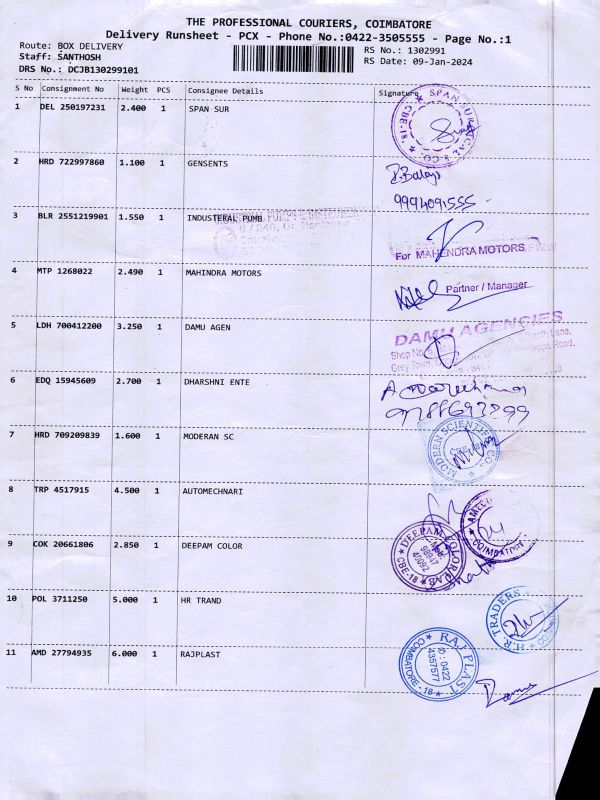 THE PROFESSIONAL COURIERS, COIMBATORE
Delivery Runsheet - PCX - Phone No.:0422-3505555 - Page No.:1
Route: BOX DELIVERY RS No.: 1302991
Staff: SANTHOSH RS Date: 09-Jan-2024
DRS No.: DCJB130299101
S No Consignment No Weight PCS Consignee Details Signature
1 DEL 250197231 2.400 1 SPAN SUR
SPAN SURGICAL & CO. CBE-18
2 HRD 722997860 1.100 1 GENSENTS
R. Balaji
9994091555
3 BLR 2551219901 1.550 1 INDUSTERAL PUMB
For MAHENDRA MOTORS
4 MTP 1268022 2.490 1 MAHINDRA MOTORS
Partner / Manager
5 LDH 700412200 3.250 1 DAMU AGEN
DAMU AGENCIES
Shop No.
Grey Town Road,
6 EDQ 15945609 2.700 1 DHARSHNI ENTE
7 HRD 709209839 1.600 1 MODERAN SC
MODERN SCIENTIFIC CO.
8 TRP 4517915 4.500 1 AUTOMECHNARI
COIMBATORE
9 COK 20661806 2.850 1 DEEPAM COLOR
DEEPAM COLOR LAB CBE-18
10 POL 3711250 5.000 1 HR TRAND
H.R. TRADERS
11 AMD 27794935 6.000 1 RAJPLAST
RAJ PLAST COIMBATORE - 18
0422
4357577